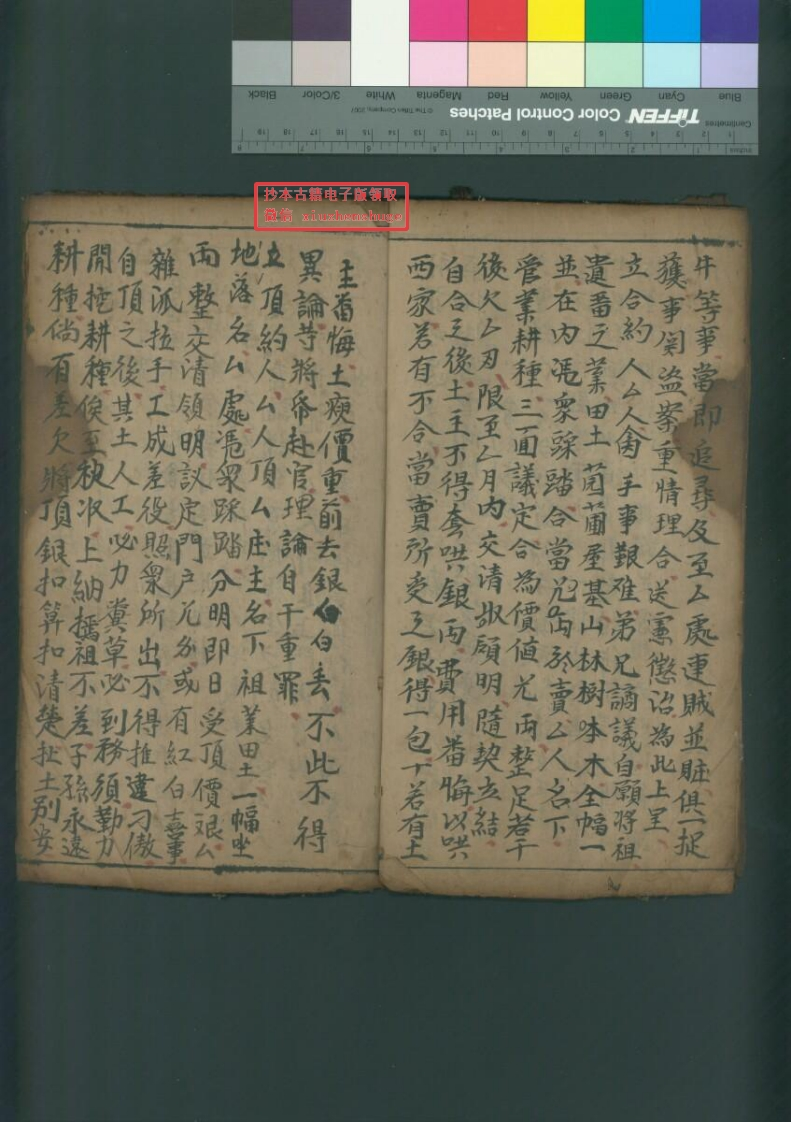 Blue Cyan Green Yellow Red Magenta White 3/Color Black
TIFFEN Color Control Patches
© The Tiffen Company, 2007
Centimetres
Inches
抄本古籍电子版领取
微信 xiuzhenshuge
牛等事當即追尋及至厶處連賊並賍俱一捉
獲事関盜案重情理合送憲懲治為此上呈
立合約人厶人 手事艱难弟兄謫議自願將祖
遺畨之業田土茴蒲屋基山林樹 木全幅一
並在内憑衆踩踏合當 於賣厶人名下
管業耕種三面議定合為價值 両整足若干
後欠厶 限至厶月内交清 領明隨契去結
自合之後土主不得套哄銀両費用畨悔以哄
西家若有不合當賣所受之銀得一包十若有土
主畨悔土 價重前去銀白白丢不此不得
異論 將 赴官理論自干重罪
立頂約人厶人頂厶庄主名下祖業田土一幅坐
地落名厶處憑衆踩踏分明即日受頂價艮厶
両整交清領明議定門户 或有紅白喜事
雜派拉手工成差役照衆所出不得推違刁傲
自頂之後其土人工必力糞草必到務須勤力
開挖耕種俟至秋收上納 祖不差子孫永遠
耕種倘有差欠將頂銀扣算扣清楚扯土别安